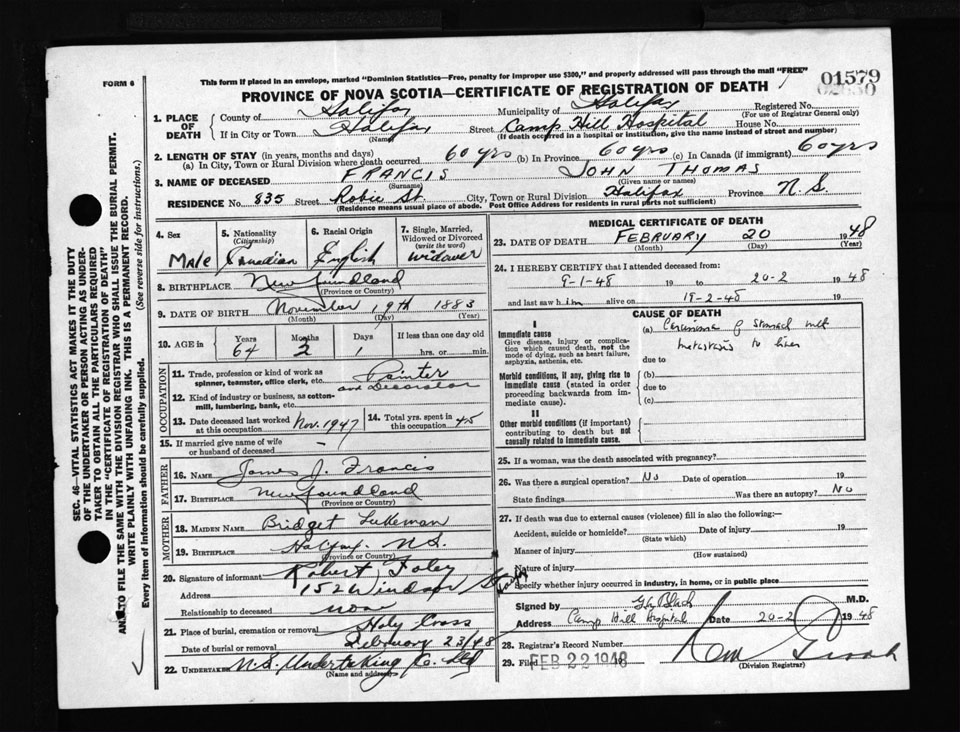 This form if placed in an envelope, marked "Dominion Statistics—Free, penalty for improper use $300," and properly addressed will pass through the mail "FREE"
FORM 6
01579
PROVINCE OF NOVA SCOTIA—CERTIFICATE OF REGISTRATION OF DEATH
1. PLACE OF DEATH
County of Halifax Municipality of Halifax Registered No.
(For use of Registrar General only)
If in City or Town Halifax Street Camp Hill Hospital House No.
(Name) (If death occurred in a hospital or institution, give the name instead of street and number)
2. LENGTH OF STAY (in years, months and days)
(a) In City, Town or Rural Division where death occurred 60 yrs (b) In Province 60 yrs (c) In Canada (if immigrant) 60 yrs
3. NAME OF DECEASED FRANCIS JOHN THOMAS
(Surname) (Given name or names)
RESIDENCE No. 835 Street Robie St. City, Town or Rural Division Halifax Province N.S.
(Residence means usual place of abode. Post Office Address for residents in rural parts not sufficient)
4. Sex Male
5. Nationality (Citizenship) Canadian
6. Racial Origin English
7. Single, Married, Widowed or Divorced (write the word) Widower
8. BIRTHPLACE Newfoundland
(Province or Country)
9. DATE OF BIRTH November 19th 1883
(Month) (Day) (Year)
10. AGE in Years 64 Months 2 Days 1 If less than one day old
hrs. or min.
OCCUPATION
11. Trade, profession or kind of work as spinner, teamster, office clerk, etc. Painter and Decorator
12. Kind of industry or business, as cotton-mill, lumbering, bank, etc.
13. Date deceased last worked at this occupation Nov. 1947
14. Total yrs. spent in this occupation 45
15. If married give name of wife or husband of deceased -
FATHER
16. NAME James J. Francis
17. BIRTHPLACE Newfoundland
(Province or Country)
MOTHER
18. MAIDEN NAME Bridget Lukeman
19. BIRTHPLACE Halifax N.S.
(Province or Country)
20. Signature of informant Robert Foley
Address 152 Windsor St
Relationship to deceased none
21. Place of burial, cremation or removal Holy Cross
Date of burial or removal February 23/48
22. UNDERTAKER N.S. Undertaking Co. Ltd
(Name and address)
MEDICAL CERTIFICATE OF DEATH
23. DATE OF DEATH FEBRUARY 20 1948
(Month) (Day) (Year)
24. I HEREBY CERTIFY that I attended deceased from
9-1-48 19 to 20-2 1948
and last saw him alive on 19-2-48 19
CAUSE OF DEATH
I
Immediate cause
Give disease, injury or complication which caused death, not the mode of dying, such as heart failure, asphyxia, asthenia, etc.
(a) Carcinoma of stomach with metastasis to liver
due to
Morbid conditions, if any, giving rise to immediate cause (stated in order proceeding backwards from immediate cause).
(b)
due to
(c)
II
Other morbid conditions (if important) contributing to death but not causally related to immediate cause.
25. If a woman, was the death associated with pregnancy?
26. Was there a surgical operation? No Date of operation 19
State findings Was there an autopsy? No
27. If death was due to external causes (violence) fill in also the following:—
Accident, suicide or homicide? Date of injury 19
(State which)
Manner of injury
(How sustained)
Nature of injury
Specify whether injury occurred in industry, in home, or in public place
Signed by Black M.D.
Address Camp Hill Hospital Date 20-2 1948
28. Registrar's Record Number
29. Filed FEB 22 1948
(Division Registrar)
SEC. 46—VITAL STATISTICS ACT MAKES IT THE DUTY
OF THE UNDERTAKER OR PERSON ACTING AS UNDERTAKER
TO OBTAIN ALL THE PARTICULARS REQUIRED
IN THE "CERTIFICATE OF REGISTRATION OF DEATH"
AND TO FILE THE SAME WITH THE DIVISION REGISTRAR WHO SHALL ISSUE THE BURIAL PERMIT.
WRITE PLAINLY WITH UNFADING INK. THIS IS A PERMANENT RECORD.
Every item of information should be carefully supplied. (See reverse side for instructions.)